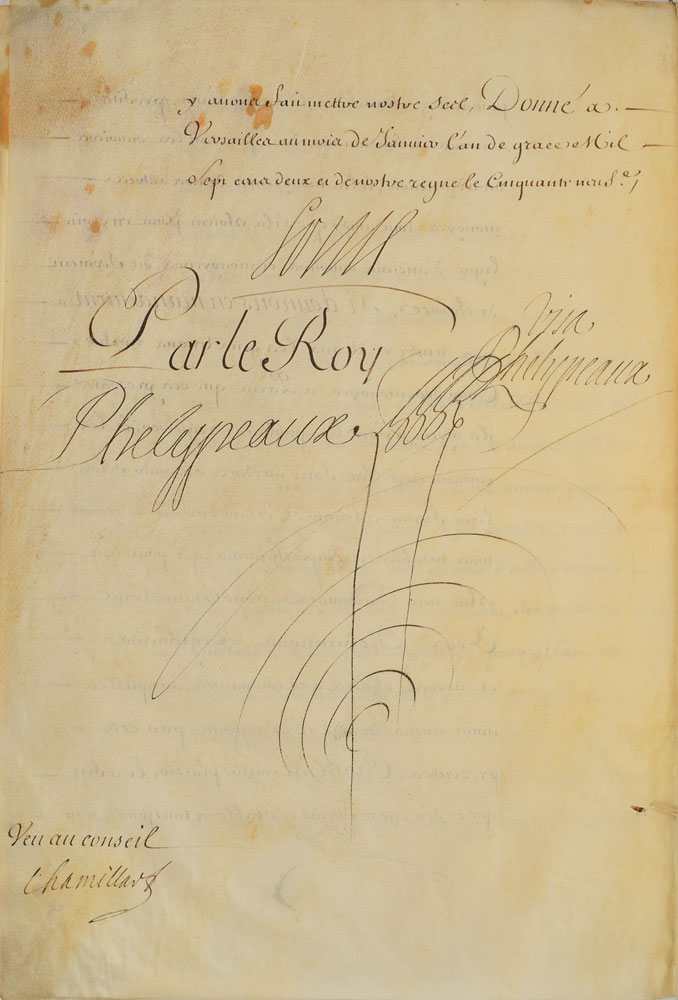 y avons fait mettre nostre Seel, Donné a
Versailles au mois de Janvier l'an de grace Mil
Sept cens deux et de nostre regne le Cinquante neuf.e
Louis
Par le Roy
visa
Phelypeaux
Phelypeaux
Veu au conseil
Chamillart